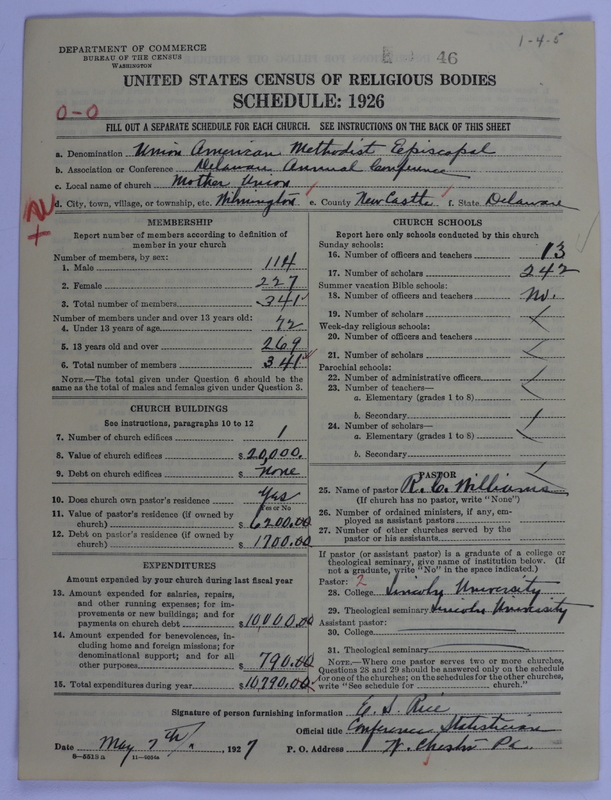 1-4-5
46
DEPARTMENT OF COMMERCE
BUREAU OF THE CENSUS
WASHINGTON
UNITED STATES CENSUS OF RELIGIOUS BODIES
SCHEDULE: 1926
0-0
FILL OUT A SEPARATE SCHEDULE FOR EACH CHURCH. SEE INSTRUCTIONS ON THE BACK OF THIS SHEET
a. Denomination Union American Methodist Episcopal
b. Association or Conference Delaware Annual Conference
c. Local name of church Mother Union
d. City, town, village, or township, etc. Wilmington e. County New Castle f. State Delaware
MEMBERSHIP
Report number of members according to definition of
member in your church
Number of members, by sex:
1. Male 114
2. Female 227
3. Total number of members 341
Number of members under and over 13 years old:
4. Under 13 years of age 72
5. 13 years old and over 269
6. Total number of members 341
NOTE.—The total given under Question 6 should be the
same as the total of males and females given under Question 3.
CHURCH BUILDINGS
See instructions, paragraphs 10 to 12
7. Number of church edifices 1
8. Value of church edifices $ 20,000.
9. Debt on church edifices $ None
10. Does church own pastor's residence Yes
Yes or No
11. Value of pastor's residence (if owned by
church) $ 6200.00
12. Debt on pastor's residence (if owned by
church) $ 1700.00
EXPENDITURES
Amount expended by your church during last fiscal year
13. Amount expended for salaries, repairs,
and other running expenses; for im-
provements or new buildings; and for
payments on church debt $ 10,000.00
14. Amount expended for benevolences, in-
cluding home and foreign missions; for
denominational support; and for all
other purposes $ 790.00
15. Total expenditures during year $ 10,790.00
CHURCH SCHOOLS
Report here only schools conducted by this church
Sunday schools:
16. Number of officers and teachers 13
17. Number of scholars 242
Summer vacation Bible schools:
18. Number of officers and teachers No.
19. Number of scholars
Week-day religious schools:
20. Number of officers and teachers
21. Number of scholars
Parochial schools:
22. Number of administrative officers
23. Number of teachers—
a. Elementary (grades 1 to 8)
b. Secondary
24. Number of scholars—
a. Elementary (grades 1 to 8)
b. Secondary
PASTOR
25. Name of pastor R. C. Williams
(If church has no pastor, write "None")
26. Number of ordained ministers, if any, em-
ployed as assistant pastors
27. Number of other churches served by the
pastor or his assistants
If pastor (or assistant pastor) is a graduate of a college or
theological seminary, give name of institution below. (If
not a graduate, write "No" in the space indicated.)
Pastor: 2
28. College Lincoln University
29. Theological seminary Lincoln University
Assistant pastor:
30. College
31. Theological seminary
NOTE.—Where one pastor serves two or more churches,
Questions 28 and 29 should be answered only on the schedule
for one of the churches; on the schedules for the other churches,
write "See schedule for church."
Signature of person furnishing information C. S. Rice
Official title Conference Statistician
Date May 7th, 1927 P. O. Address W. Chester Pa.
8-5513a 11-9684a